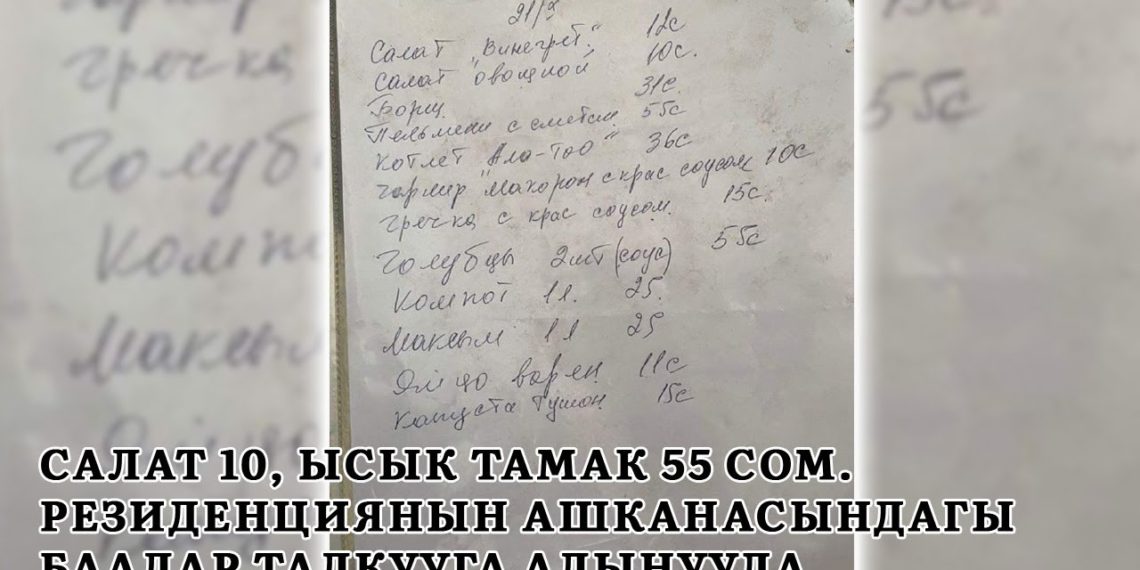 21/3
Салат "Винегрет" 12с
Салат "Овощной" 10с.
Борщ 31с.
Пельмени с сметан 55с
Котлет "Ала-Тоо" 36с
Гарнир "Макарон с крас соусом 10с
Гречка с крас соусом. 15с.
Голубцы 2шт (соус) 55с
Компот 1л. 25.
Максым 1л 25
Яйцо варен 11с
Капуста Тушон 15с
САЛАТ 10, ЫСЫК ТАМАК 55 СОМ.
РЕЗИДЕНЦИЯНЫН АШКАНАСЫНДАГЫ
БААЛАР ТАЛКУУГА АЛЫНУУДА